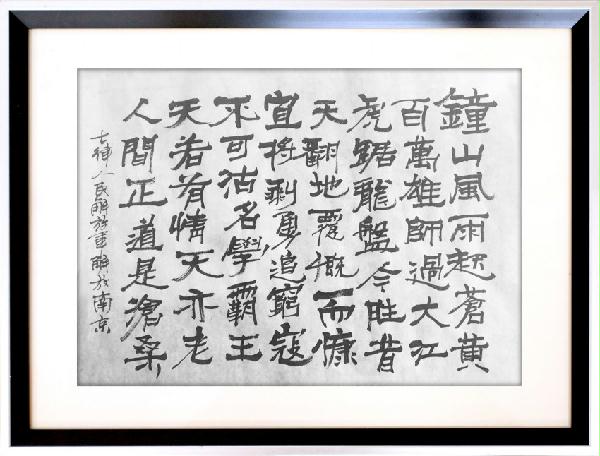 鐘山風雨起蒼黃
百萬雄師過大江
虎踞龍盤今胜昔
天翻地覆慨而慷
宜將剩勇追窮寇
不可沽名學霸王
天若有情天亦老
人間正道是滄桑
七律人民解放軍解放南京